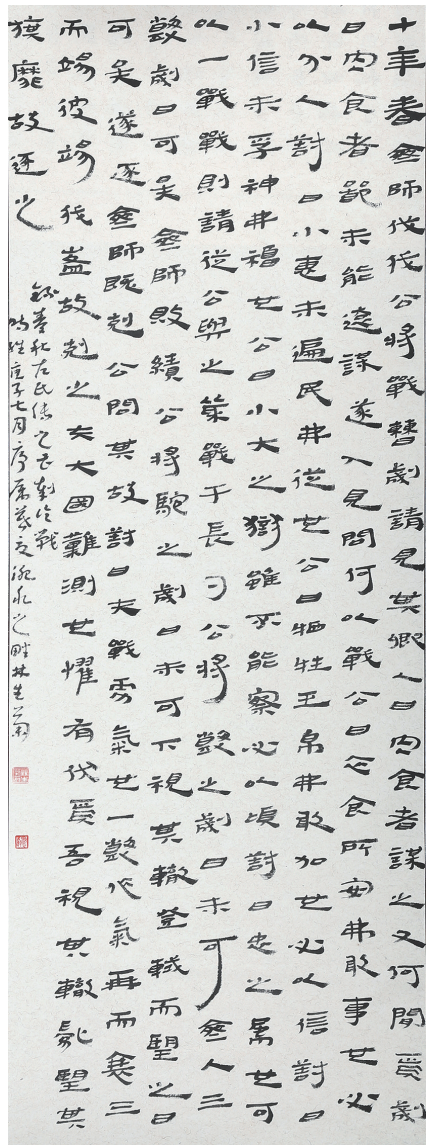 十年春齊師伐我公將戰曹劌請見其鄉人曰肉食者謀之又何間焉劌
曰肉食者鄙未能遠謀遂入見問何以戰公曰衣食所安弗敢專也必
以分人對曰小惠未遍民弗從也公曰牺牲玉帛弗敢加也必以信對曰
小信未孚神弗福也公曰小大之獄雖不能察必以情對曰忠之屬也可
以一戰戰則請從公與之乘戰于長勺公將鼓之劌曰未可齊人三
鼓劌曰可矣齊師敗績公將馳之劌曰未可下視其轍登軾而望之曰
可矣遂逐齊師既剋公問其故對曰夫戰勇氣也一鼓作氣再而衰三
而竭彼竭我盈故剋之夫大國難測也懼有伏焉吾視其轍亂望其
旗靡故逐之
錄春秋左氏傳之曹劌論戰
時維庚子七月序屬之畔林生